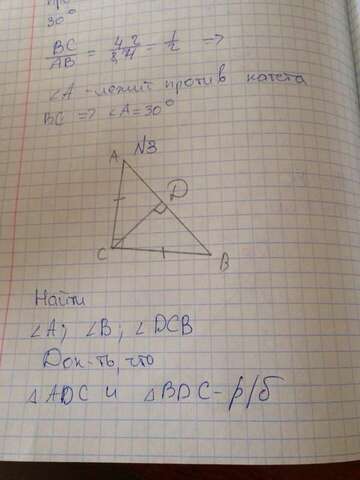 30°
BC/AB = 4,2/8,4 = 1/2 =>
∠A - лежит против катета
BC => ∠A = 30°
№3
A
D
C
B
Найти
∠A; ∠B; ∠DCB
Док-ть, что
△ADC и △BDC - р/б